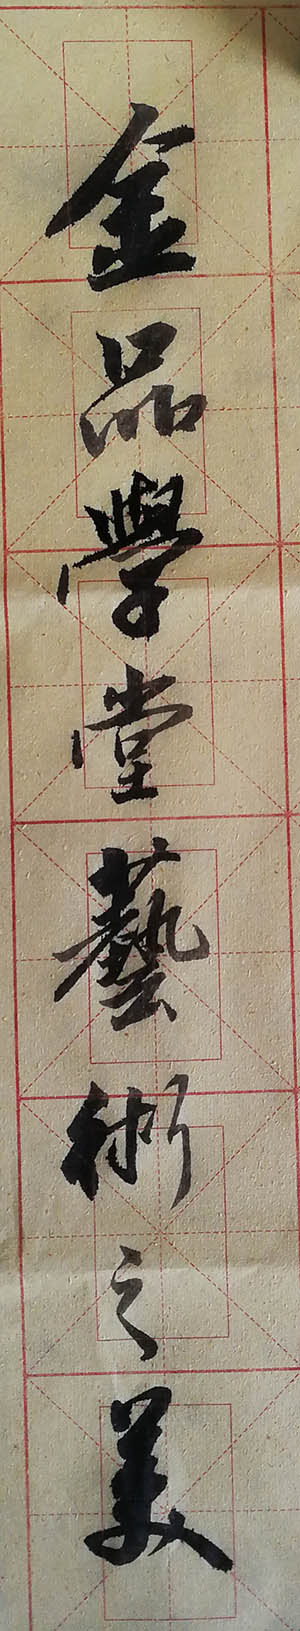 金品學堂藝術之美